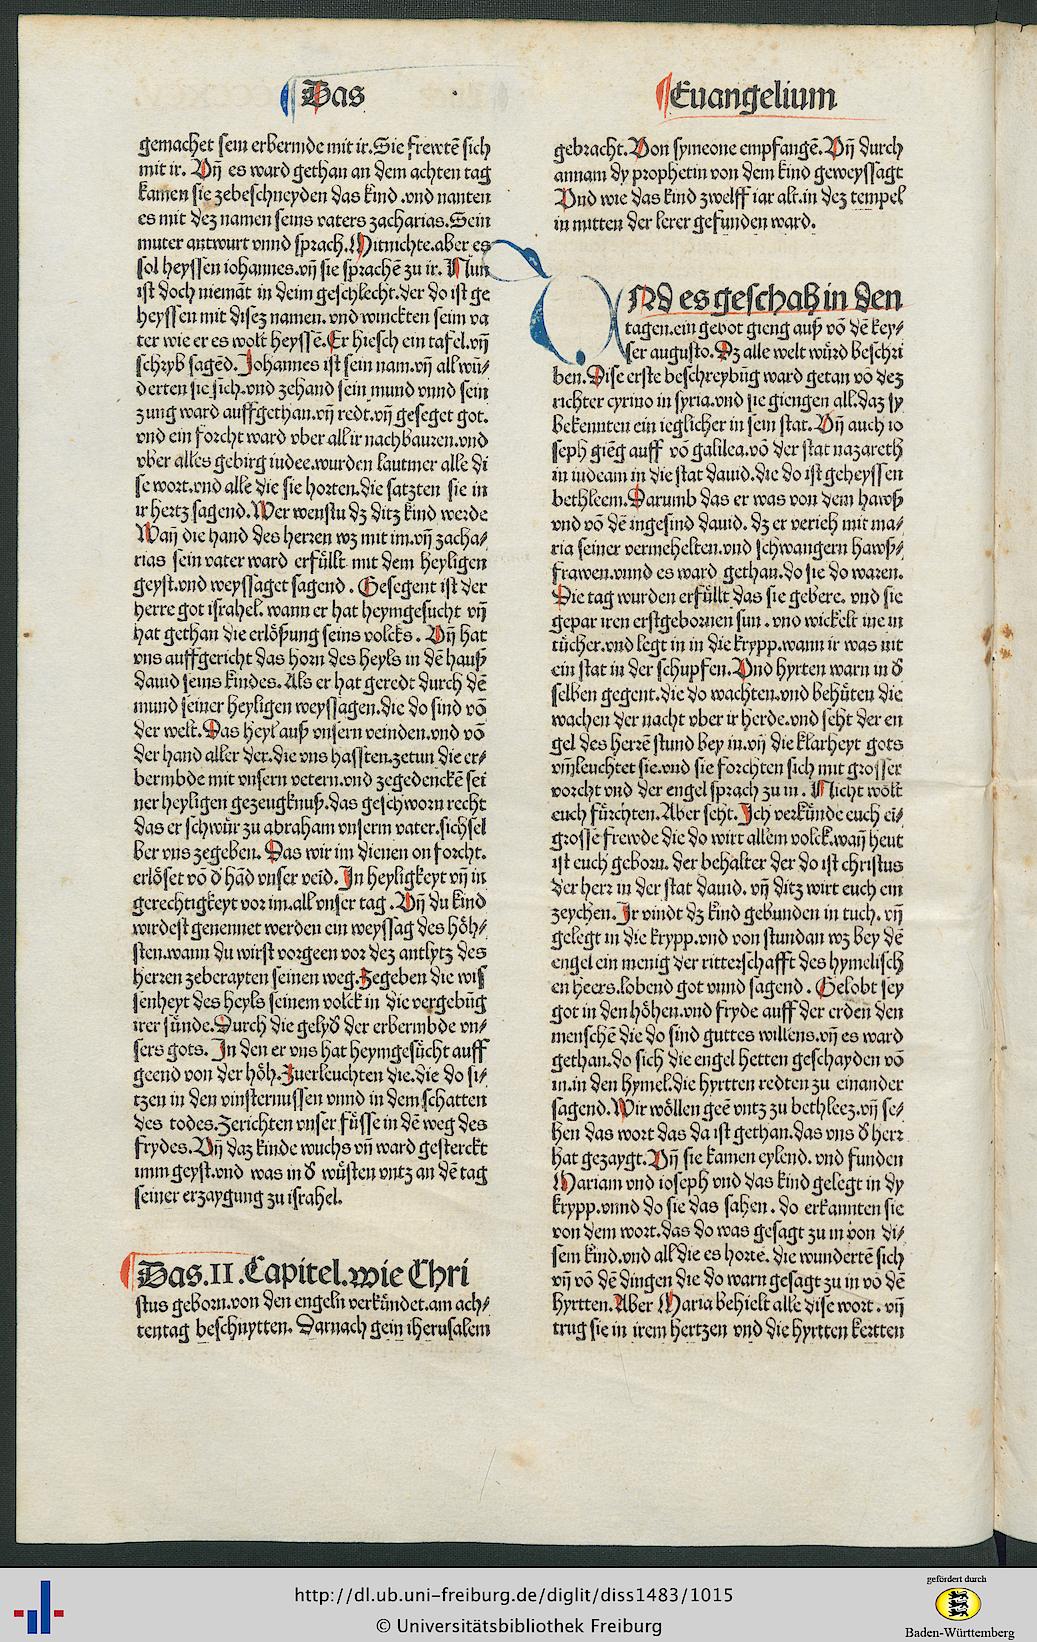 Das
Euangelium
gemachet sein erbermde mit ir. Sie frewtē sich
mit ir. Vn̄ es ward gethan an dem achten tag
kamen sie zebeschneyden das kind .vnd nanten
es mit dez namen seins vaters zacharias. Sein
muter antwurt vnnd sprach. Mitnichte. aber es
sol heyssen iohannes. vn̄ sie sprachē zu ir. Nun
ist doch niemāt in deim geschlecht. der do ist ge
heyssen mit disez namen. vnd winckten seim va
ter wie er es wolt heyssē. Er hiesch ein tafel. vn̄
schryb sagēd. Johannes ist sein nam. vn̄ all wū⸗
derten sie sich. vnd zehand sein mund vnnd sein
zung ward auffgethan. vn̄ redt. vn̄ geseget got.
vnd ein forcht ward vber all ir nachbauren. vnd
vber alles gebirg iudee. wurden lautmer alle di
se wort. vnd alle die sie horten. die satzten sie in
ir hertz sagend. Wer wenstu dz ditz kind werde
Wan̄ die hand des herren wz mit im. vn̄ zacha⸗
rias sein vater ward erfüllt mit dem heyligen
geyst. vnd weyssaget sagend . Gesegent ist der
herre got israhel. wann er hat heymgesucht vn̄
hat gethan die erlösung seins volcks . Vn̄ hat
vns auffgericht das horn des heyls in dē hauß
dauid seins kindes. Als er hat geredt durch dē
mund seiner heyligen weyssagen. die do sind vō
der welt. Das heyl auß vnsern veinden. vnd vō
der hand aller der. die vns hassten. zetun die er⸗
bermbde mit vnsern vetern. vnd zegedenckē sei
ner heyligen gezeugknuß. das geschworn recht
das er schwůr zu abraham vnserm vater. sich sel
ber vns zegeben. Das wir im dienen on forcht.
erlöset vō d hād vnser veid. In heyligkeyt vn̄ in
gerechtigkeyt vor im. all vnser tag . Vn̄ du kind
wirdest genennet werden ein weyssag des höh⸗
sten. wann du wirst vorgeen vor dez antlytz des
herren zeberayten seinen weg. Zegeben die wis
senheyt des heyls seinem volck in die vergebūg
irer sünde. Durch die gelyd der erbermbde vn⸗
sers gots. In den er vns hat heymgesůcht auff
geend von der höh. Zuerleuchten die. die do si⸗
tzen in den vinsternussen vnnd in dem schatten
des todes. Zerichten vnser füsse in dē weg des
frydes. Vn̄ daz kinde wuchs vn̄ ward gesterckt
imm geyst. vnd was in d wüsten vntz an dē tag
seiner erzaygung zu israhel.
Das .II. Capitel. wie Chri
stus geborn. von den engeln verkündet. am ach⸗
tentag beschnytten. Darnach gein iherusalem
gebracht. Von symeone empfangē. Vn̄ durch
annam dy prophetin von dem kind geweyssagt
Vnd wie das kind zwelff iar alt. in dez tempel
in mitten der lerer gefunden ward.
VNd es geschah in den
tagen. ein gebot gieng auß vō dē key⸗
ser augusto. Dz alle welt würd beschri
ben. Dise erste beschreybūg ward getan vō dez
richter cyrino in syria. vnd sie giengen all. daz sy
bekennten ein ieglicher in sein stat. Vn̄ auch io
seph giēg auff vō galilea. vō der stat nazareth
in iudeam in die stat dauid. die do ist geheyssen
bethleem. Darumb das er was von dem hawß
vnd vō dē ingesind dauid. dz er verieh mit ma⸗
ria seiner vermehelten. vnd schwangern hawß⸗
frawen. vnnd es ward gethan. do sie do waren.
Die tag wurden erfüllt das sie gebere. vnd sie
gepar iren erstgebornen sun . vnd wickelt ine in
tücher. vnd legt in in die krypp. wann ir was nit
ein stat in der schupfen. Vnd hyrten warn in d
selben gegent. die do wachten. vnd behüten die
wachen der nacht vber ir herde. vnd seht der en
gel des herrē stund bey in. vn̄ die klarheyt gots
vm̄leuchtet sie. vnd sie forchten sich mit grosser
vorcht vnd der engel sprach zu in . Nicht wölt
euch fürchten. Aber seht. Ich verkünde euch ei⸗
grosse frewde die do wirt allem volck. wan̄ heut
ist euch geborn. der behalter der do ist christus
der herr in der stat dauid. vn̄ ditz wirt euch ein
zeychen. Ir vindt dz kind gebunden in tuch. vn̄
gelegt in die krypp. vnd von stundan wz bey dē
engel ein menig der ritterschafft des hymelisch
en heers. lobend got vnnd sagend . Gelobt sey
got in den höhen. vnd fryde auff der erden den
menschē die do sind guttes willens. vn̄ es ward
gethan. do sich die engel hetten geschayden vō
in. in den hymel. die hyrtten redten zu einander
sagend. Wir wöllen geē vntz zu bethleez. vn̄ se⸗
hen das wort das da ist gethan. das vns d herr
hat gezaygt. Vn̄ sie kamen eylend. vnd funden
Mariam vnd ioseph vnd das kind gelegt in dy
krypp. vnnd do sie das sahen. do erkannten sie
von dem wort. das do was gesagt zu in von di⸗
sem kind. vnd all die es hortē. die wundertē sich
vn̄ vō dē dingen die do warn gesagt zu in vō dē
hyrtten. Aber Maria behielt alle dise wort . vn̄
trug sie in irem hertzen vnd die hyrtten kertten
http://dl.ub.uni-freiburg.de/diglit/diss1483/1015
© Universitätsbibliothek Freiburg
gefördert durch
Baden-Württemberg